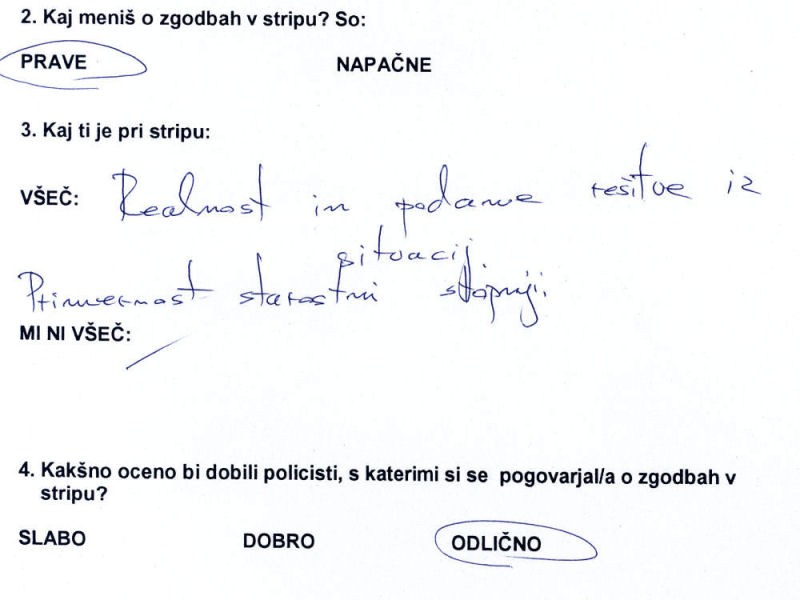 2. Kaj meniš o zgodbah v stripu? So:
PRAVE NAPAČNE
3. Kaj ti je pri stripu:
VŠEČ: Realnost in podane rešitve iz
situacij.
Primernost starostni stopnji.
MI NI VŠEČ: /
4. Kakšno oceno bi dobili policisti, s katerimi si se pogovarjal/a o zgodbah v
stripu?
SLABO DOBRO ODLIČNO